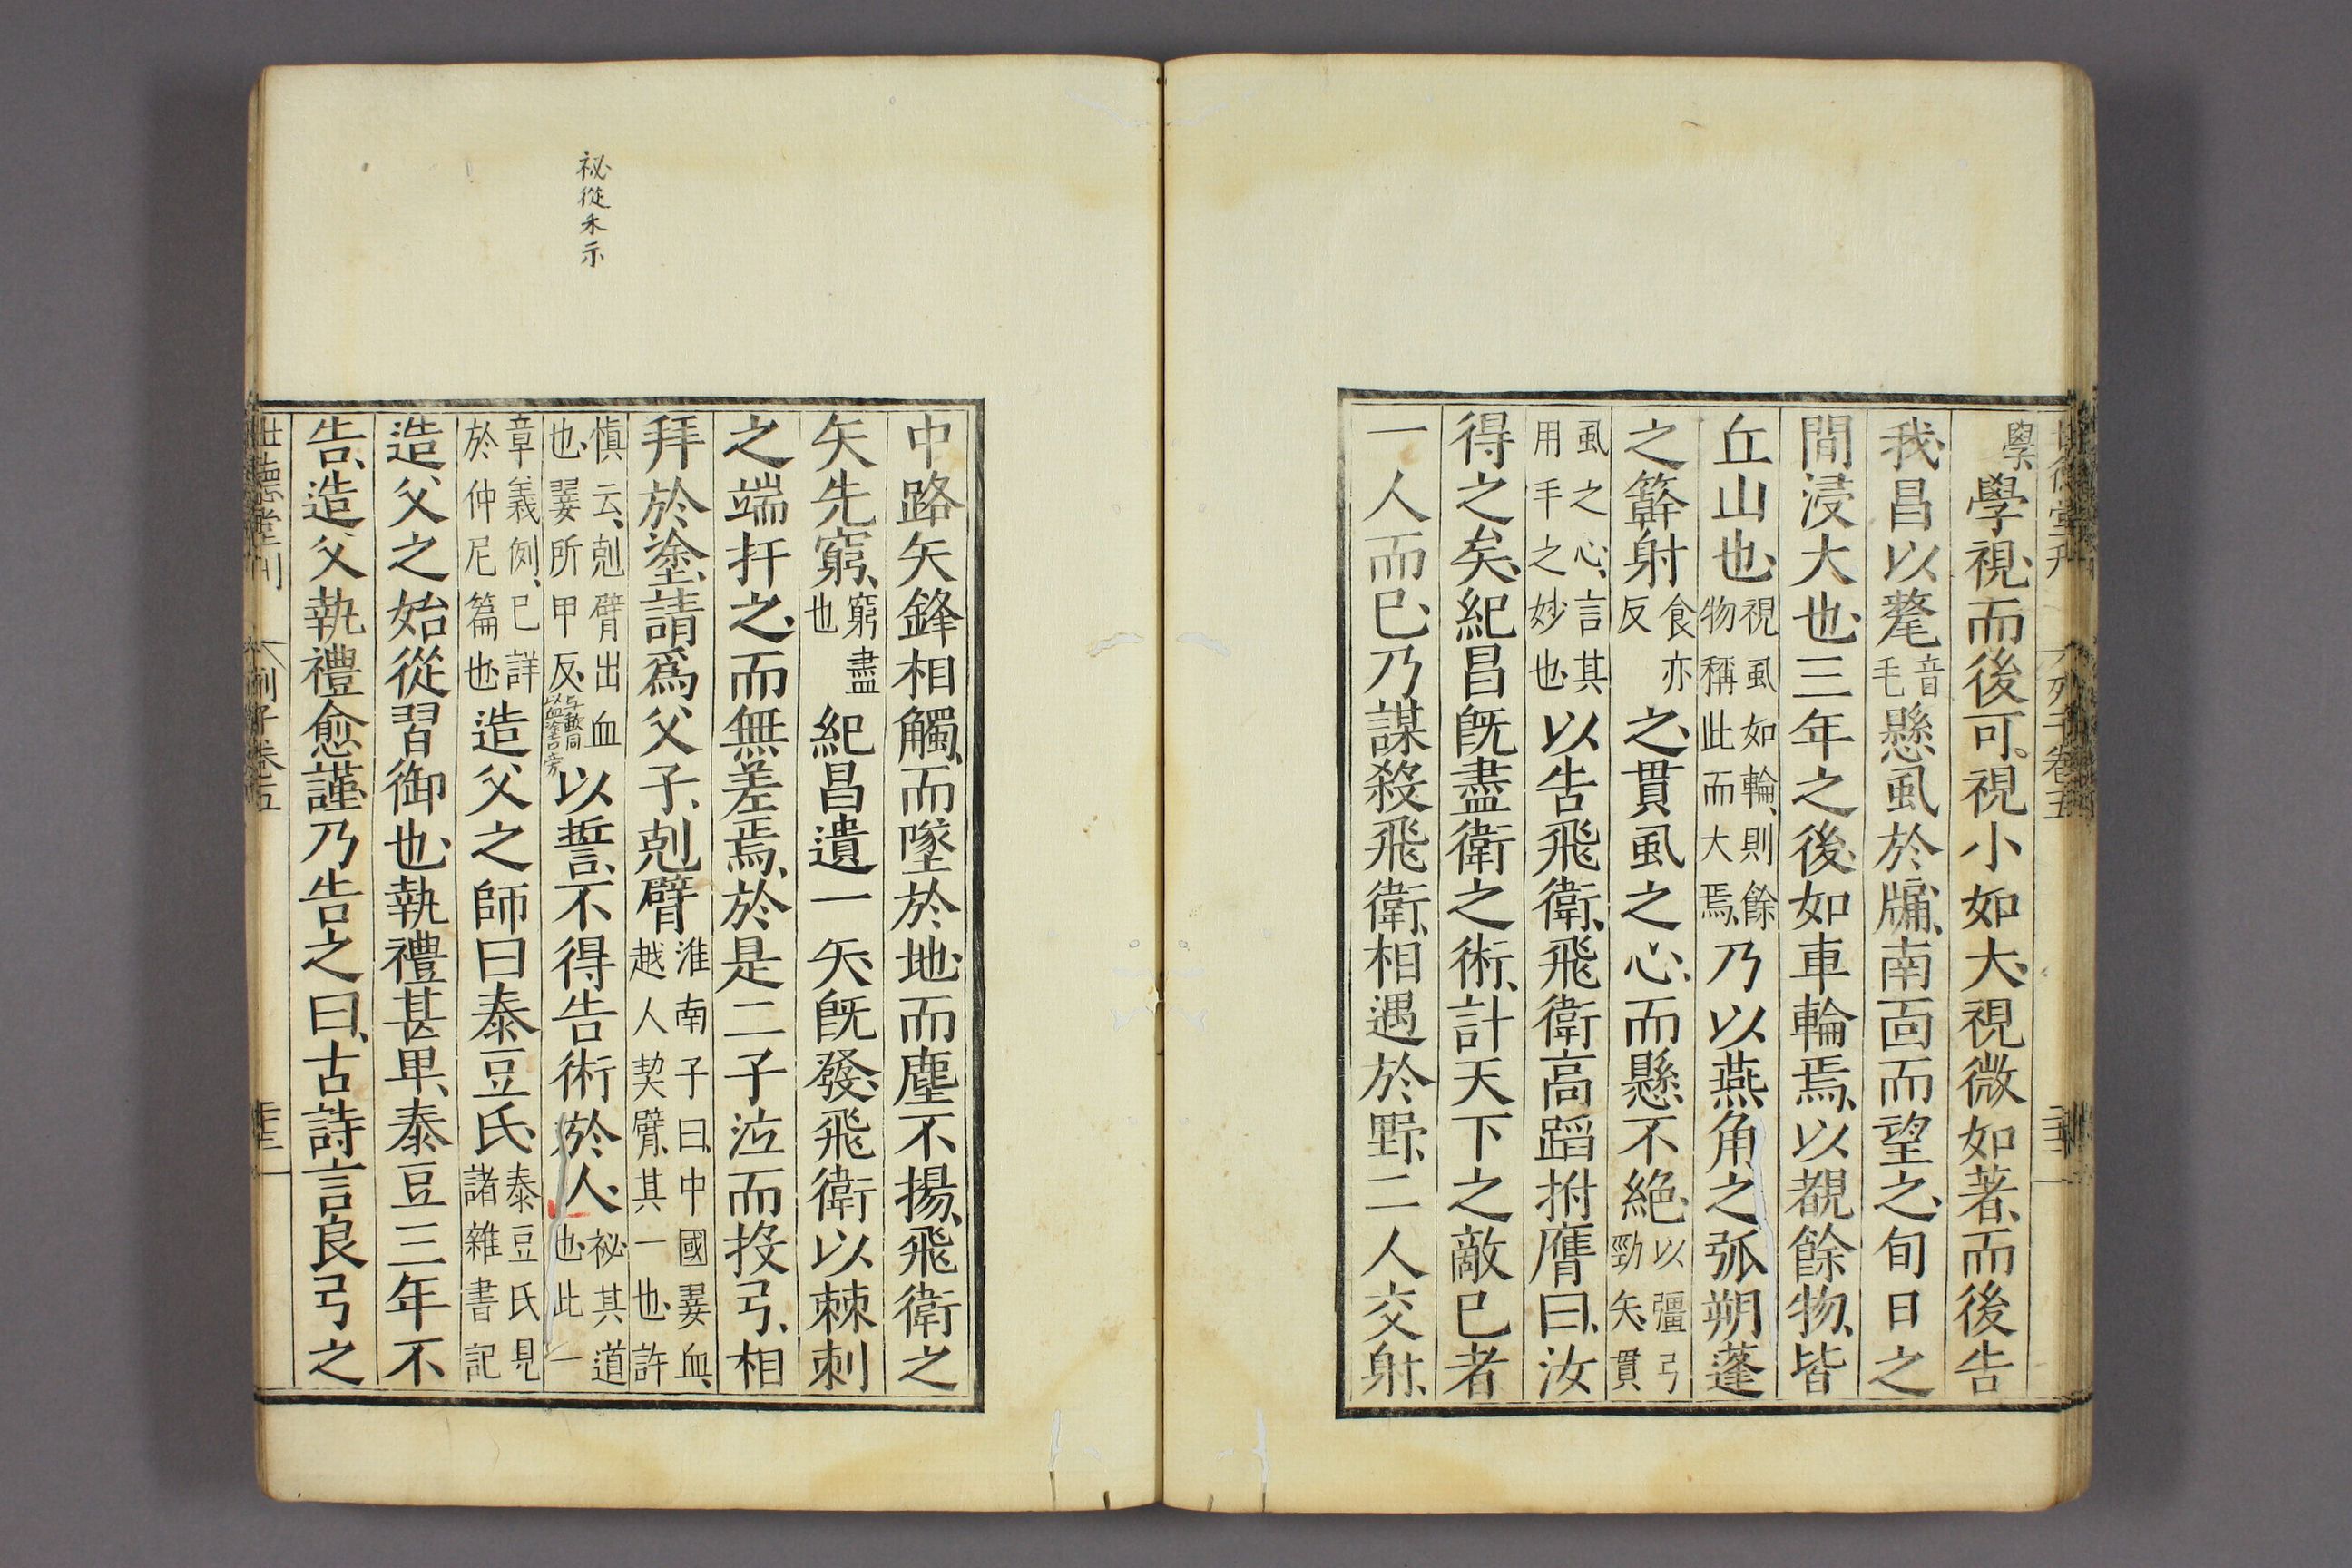 學學視、而後可。視小如大、視微如著、而後告
我、昌以氂音毛懸虱於牖、南面而望之、旬日之
間浸大也、三年之後、如車輪焉、以覩餘物、皆
丘山也、視虱如輪、則餘物稱此而大焉、乃以燕角之弧朔蓬
之簳射食亦反之、貫虱之心、而懸不絶、以彊弓勁矢、貫
虱之心、言其用手之妙也、以告飛衛、飛衛高蹈拊膺曰、汝
得之矣、紀昌旣盡衛之術、計天下之敵已者
一人而已、乃謀殺飛衛、相遇於野、二人交射、
中路矢鋒相觸、而墜於地、而塵不揚、飛衛之
矢先窮、窮盡也紀昌遺一矢、旣發、飛衛以棘刺
之端扞之、而無差焉、於是二子泣而投弓、相
拜於塗、請爲父子、剋臂淮南子曰、中國歃血、越人契臂、其一也、許
愼云、剋臂出血也、歃所甲反、与歃同以血塗口旁以誓、不得告術於人、祕其道也、此一
章義例、已詳於仲尼篇也、造父之師曰泰豆氏、泰豆氏見諸雜書記
造父之始從習御也、執禮甚卑、泰豆三年不
告、造父執禮愈謹、乃告之曰、古詩言良弓之
世德堂刊 列子卷五
祕從木示